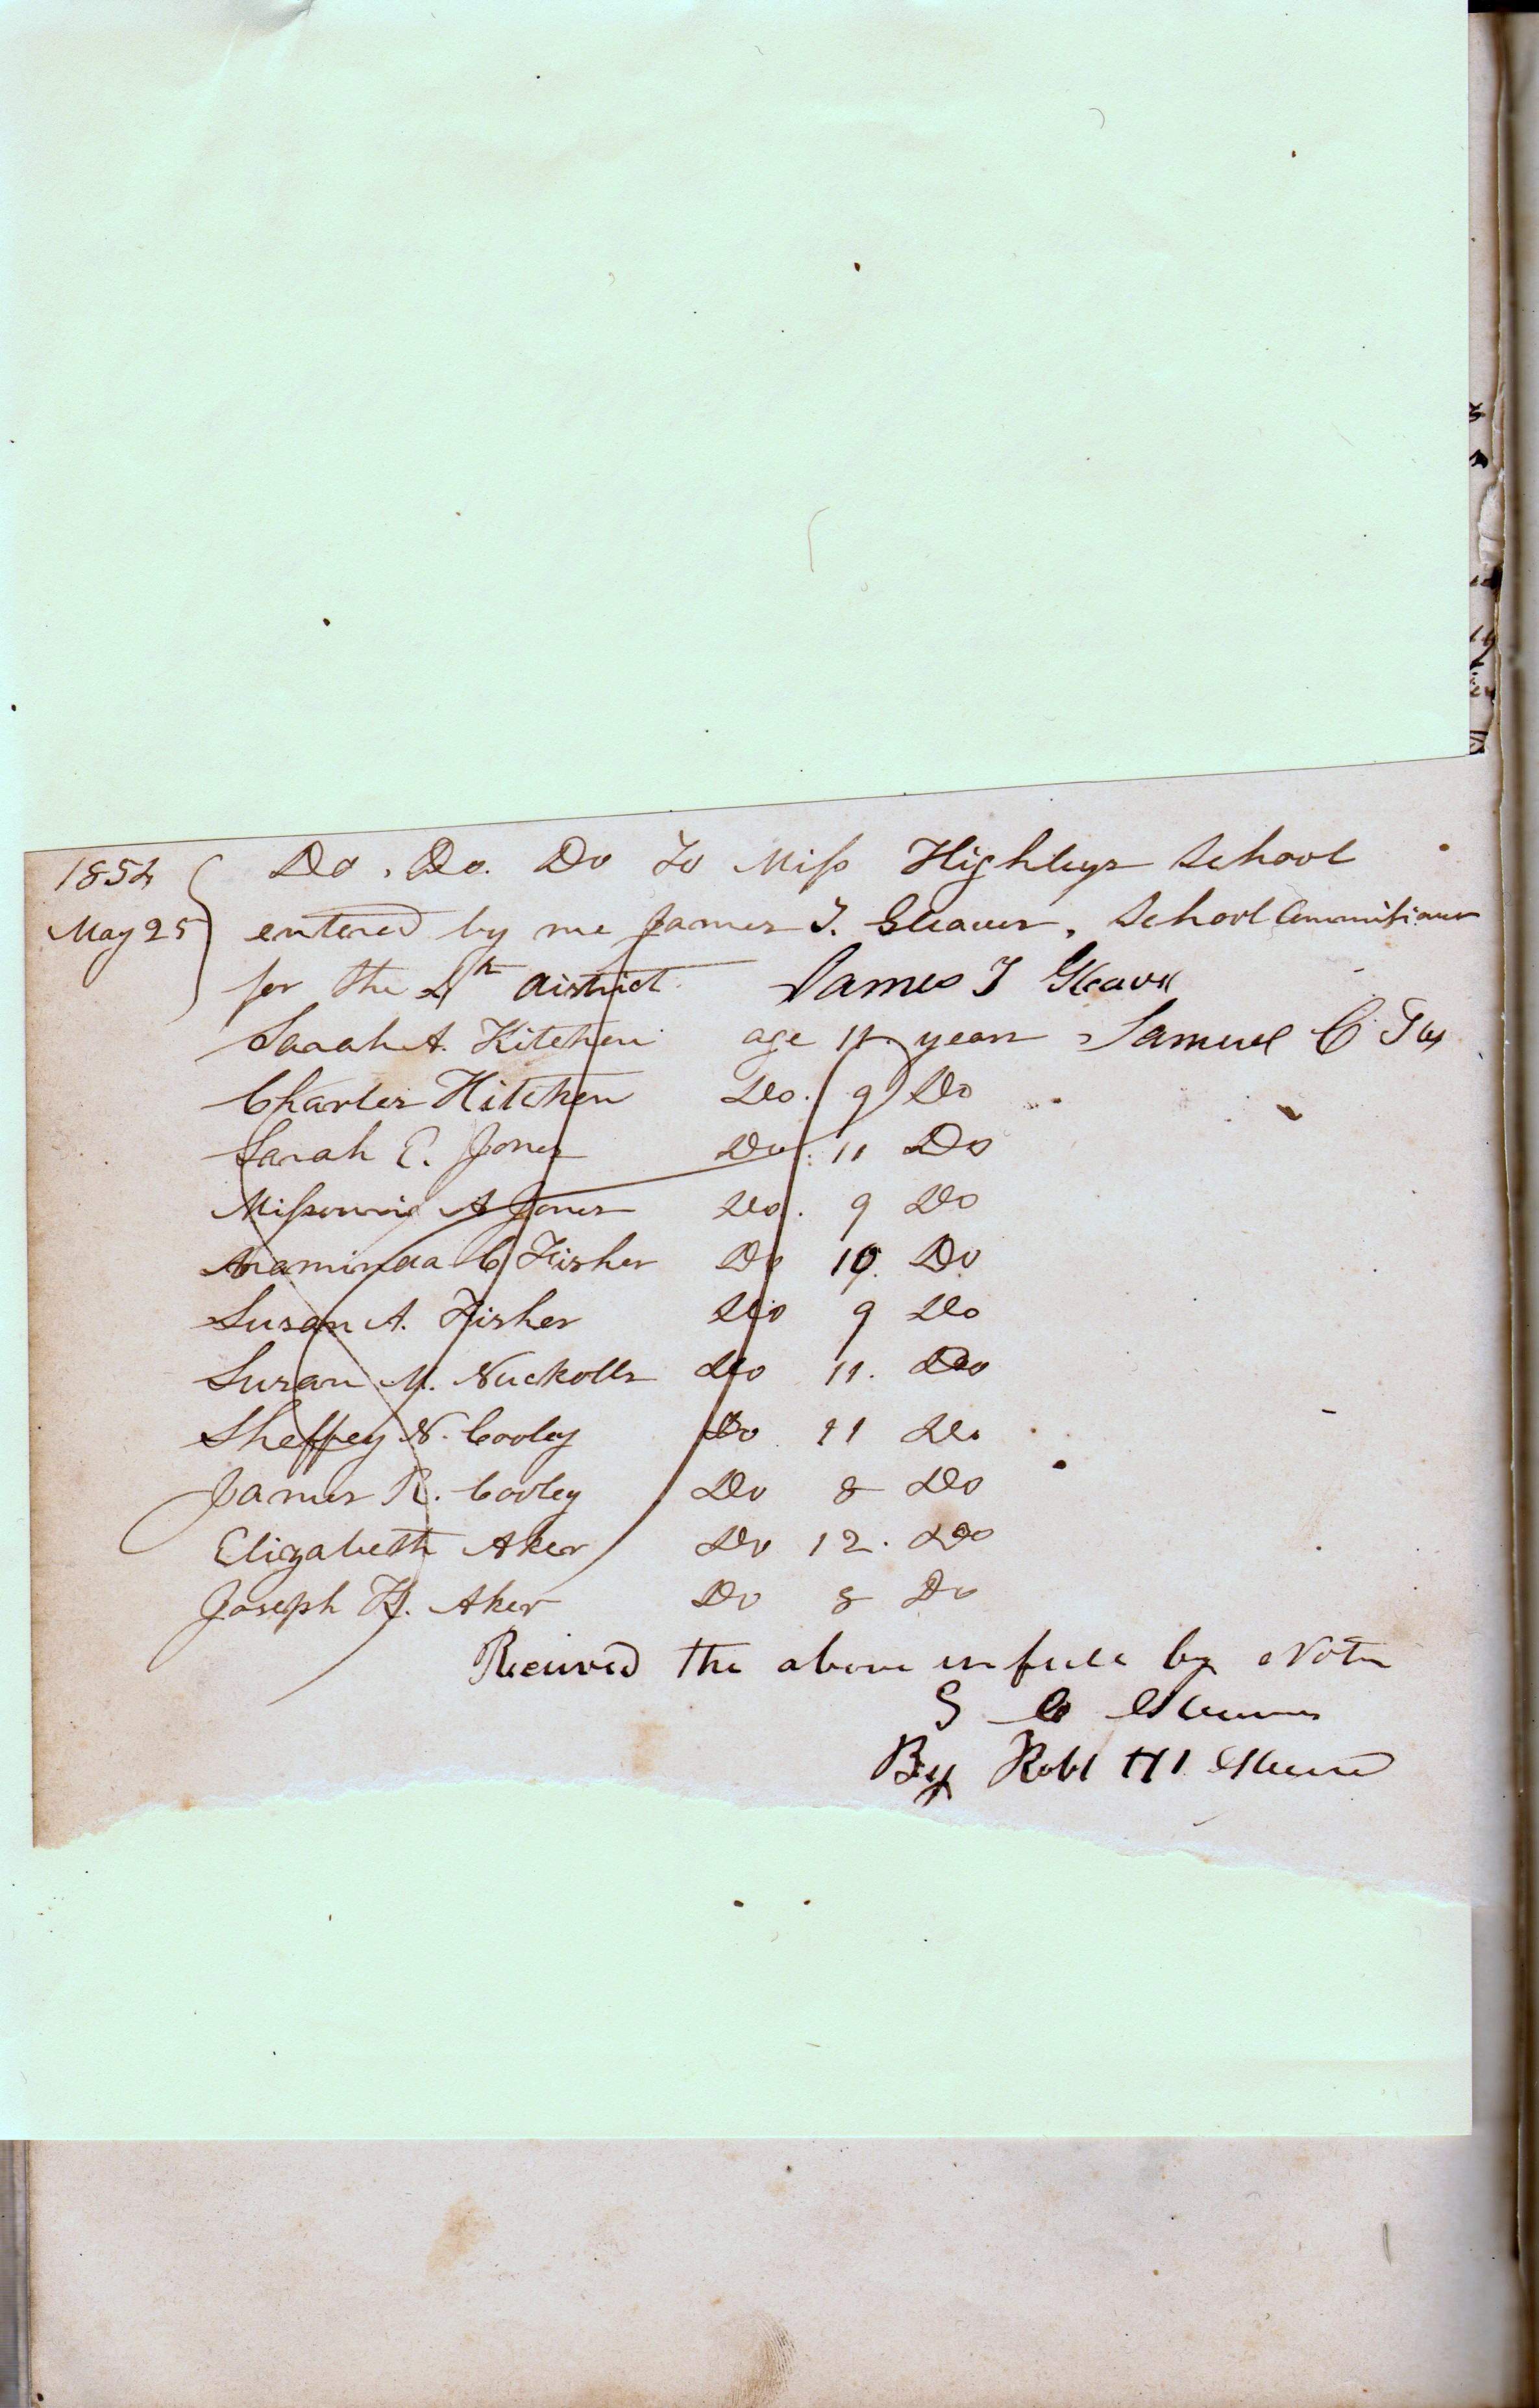 1854 Do. Do. Do To Miss Highleys School
May 25 entered by me James T. Gleaves, School Commissioner
for the 4th district. James T Gleaves
Sarah A. Kitchen age 11 years Samuel C
Charles Kitchen Do. 9 Do
Sarah E. Jones Do. 11 Do
Missouria A Jones Do. 9 Do
Araminda C Fisher Do 10 Do
Susan A. Fisher Do 9 Do
Susan M. Nuckolls Do 11. Do
Sheffey N. Cooley Do 11 Do
James R. Cooley Do 8 Do
Elizabeth Aker Do 12. Do
Joseph H. Aker Do 8 Do
Received the above in full by Note
S C
By Robt H